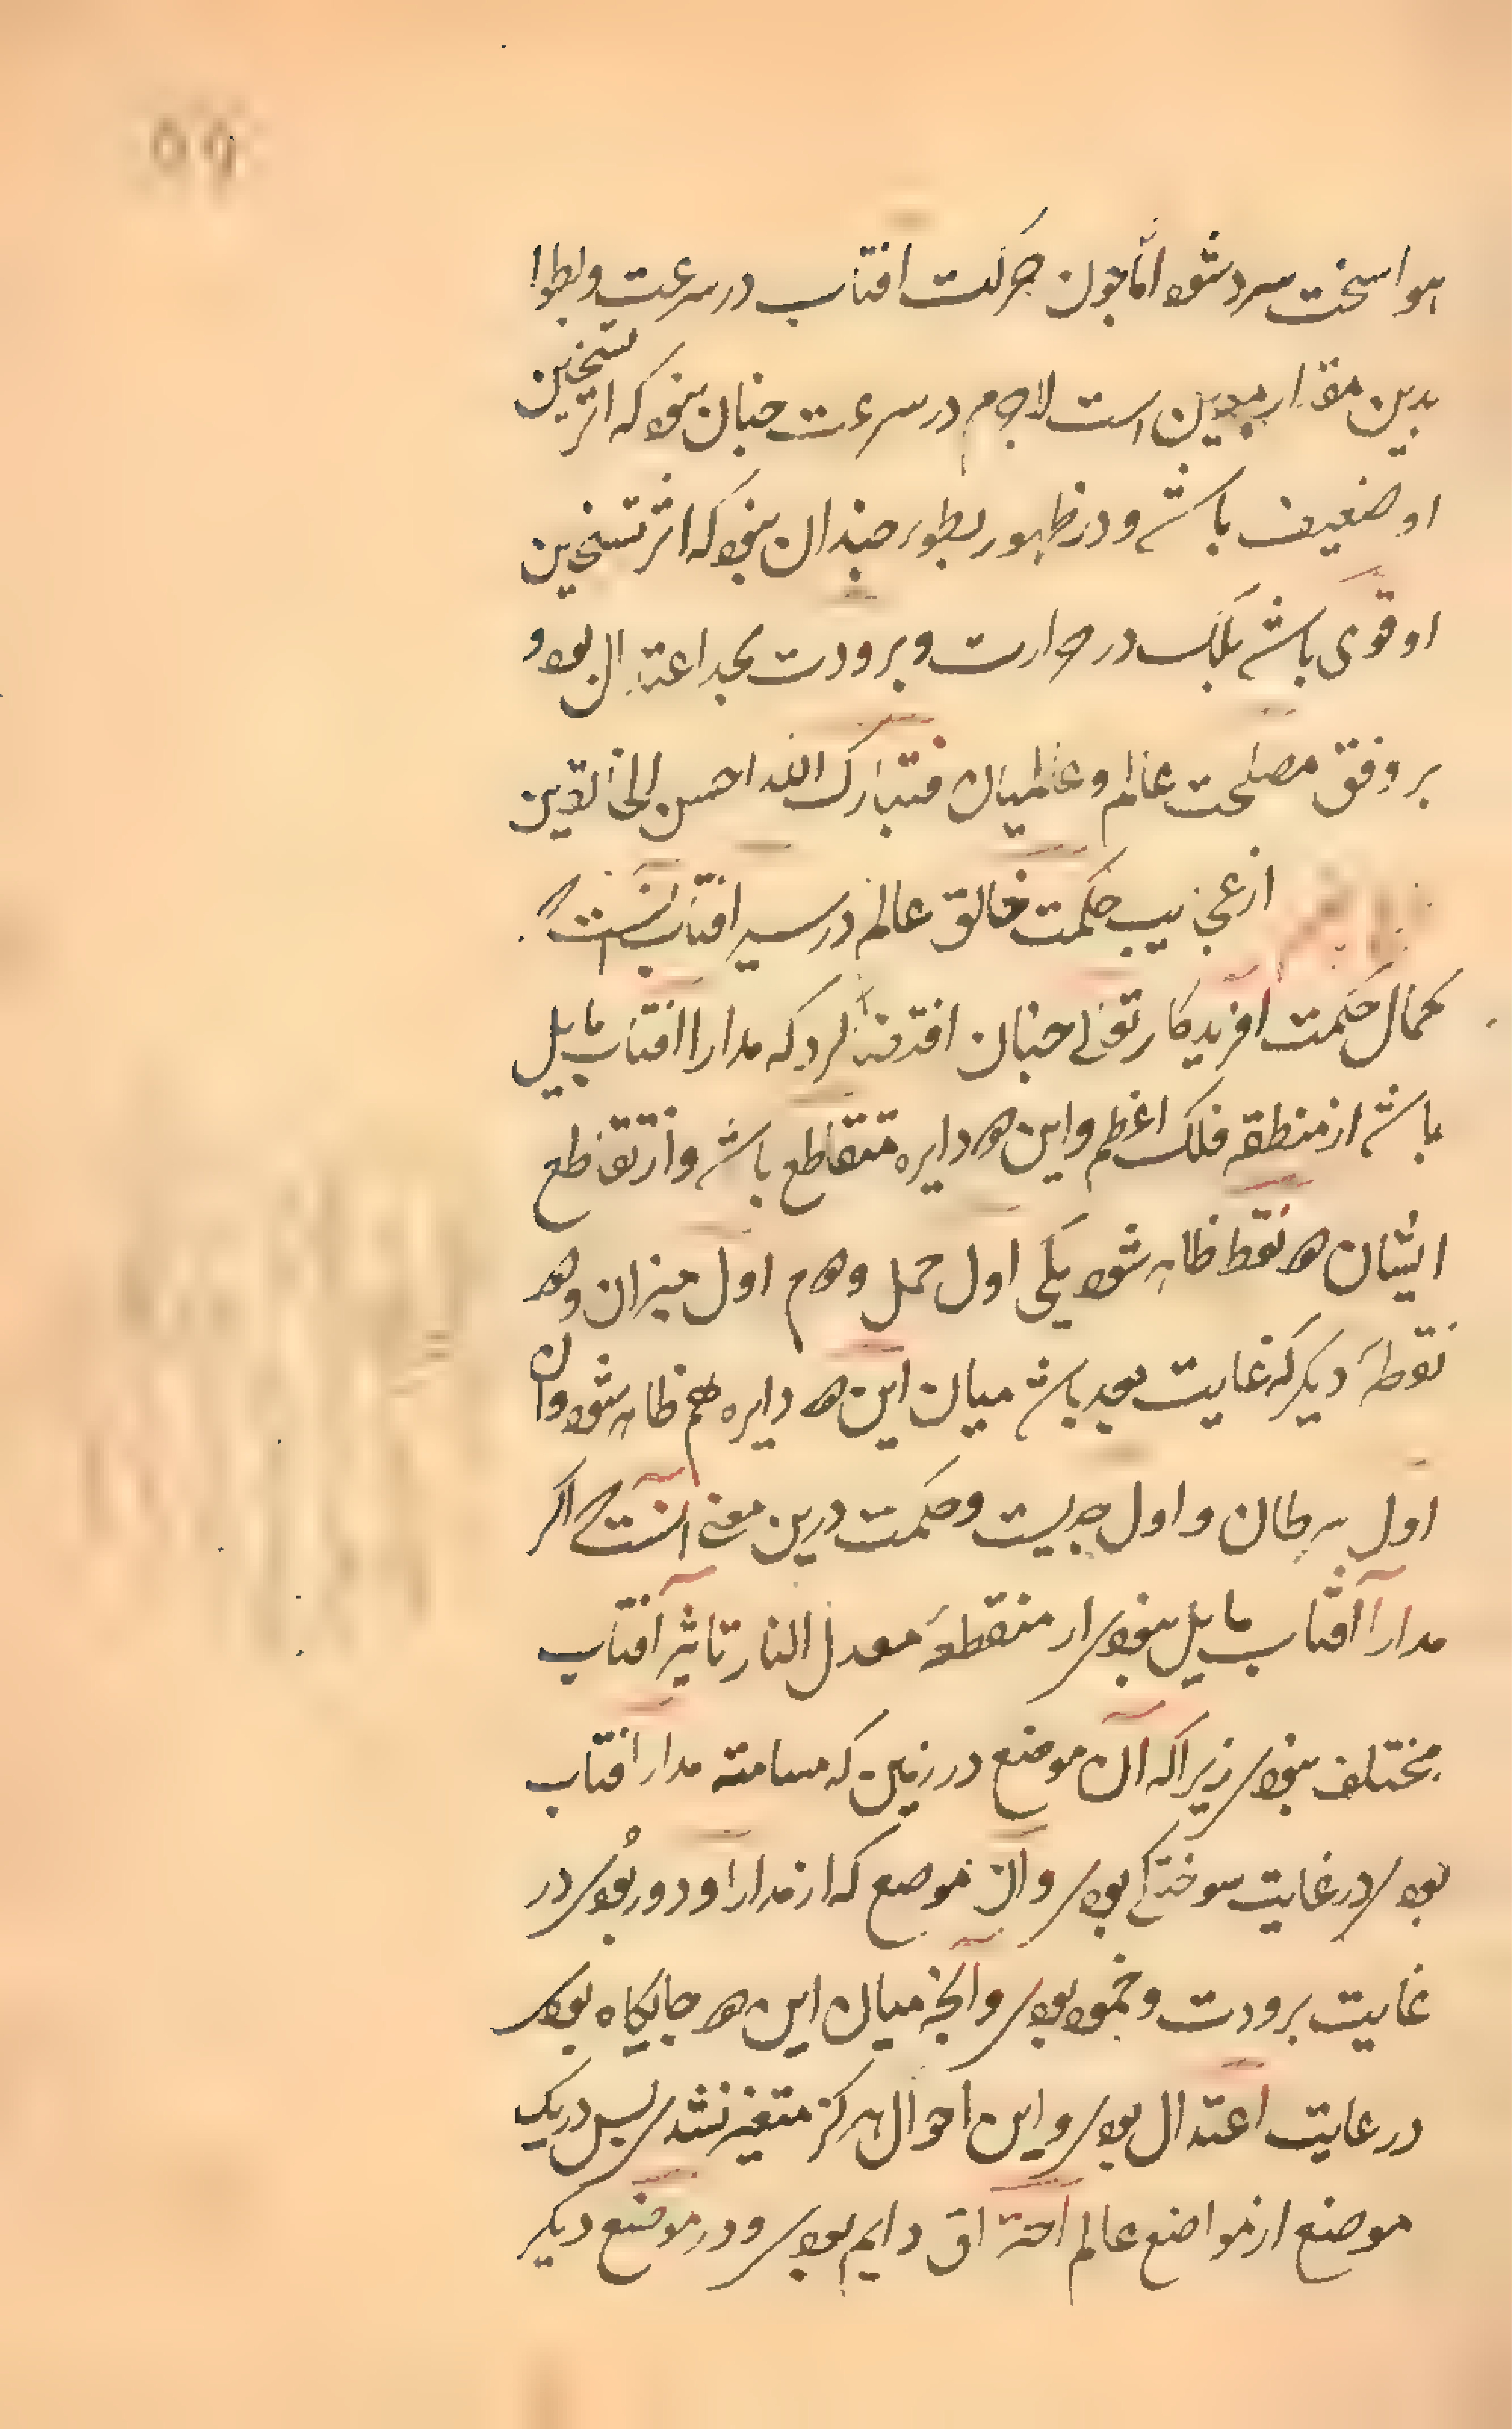 هوا سخت سرد شود اما چون حرکت افتاب در سرعت و بطوا
بدین مقدار معین است لاجرم در سرعت چنان نبود که اثر تسخین
او ضعیف باشد و در ظهور بطوء چندان نبود که اثر تسخین
او قوی باشد بلک در حرارت و برودت بحد اعتدال بود و
بر وفق مصلحت عالم و عالمیان فتبارک الله احسن الخالقین
از عجایب حکمت خالق عالم در سیر افتاب آنست کی
کمال حکمت آفریدکار تعالی چنان اقتضا کرد که مدار آفتاب مایل
باشد از منطقه فلک اعظم و این دو دایره متقاطع باشد و از تقاطع
ایشان دو نقطه ظاهر شود یکی اول حمل و دوم اول میزان و دو
نقطهٔ دیکر که غایت بعد باشد میان این دو دایره هم ظاهر شود و آن
اول سرطان و اول جدیست و حکمت درین معنی آنست کی اکر
مدار آفتاب مایل نبودی از منقطهٔ معدل النهار تاثیر آفتاب
مختلف نبودی زیرا که آن موضع در زمین که مسامته مدار افتاب
بودی در غایت سوختکی بودی و آن موضع که از مدار او دور بودی در
غایت برودت و جمود بودی و آنچه میان این دو جایکاه بودی
در غایت اعتدال بودی و این احوال هرکز متغیر نشدی پس در یک
موضع از مواضع عالم احتراق دایم بودی و در موضع دیکر